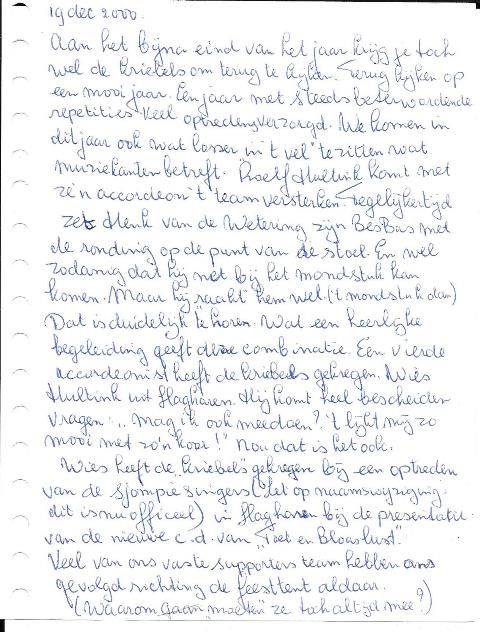 19 dec 2000.
Aan het bijna eind van het jaar krijg je toch
wel de kriebels om terug te kijken. Terug kijken op
een mooi jaar. Een jaar met steeds beter wordende
repetities. Veel optredens verzorgd. We komen in
dit jaar ook wat losser in 't vel te zitten wat
muziekanten betreft. Roelf Hultink komt met
z'n accordeon 't team versterken. Tegelijkertijd
zet Henk van de Wetering zijn BesBas met
de ronding op de punt van de stoel. En wel
zodanig dat hij net bij het mondstuk kan
komen. Maar hij "raakt" hem wel. ('t mondstuk dan)
Dat is duidelijk te horen. Wat een heerlijke
begeleiding geeft deze combinatie. Een vierde
accordeonist heeft de kriebels gekregen. Wies
Hultink uit Slagharen. Hij komt heel bescheiden
vragen: "mag ik ook meedoen? 't lijkt mij zo
mooi met zo'n koor!" Nou dat is het ook.
Wies heeft de kriebels gekregen bij een optreden
van de Sjompie singers (let op naamswijziging
dit is nu officeel) in Slagharen bij de presentatie
van de nieuwe c.d. van "Toet en Blaaslust".
Veel van ons vaste supporters team hebben ons
gevolgd richting de feesttent aldaar.
(Waarom gaan "moeten" ze toch altijd mee?)